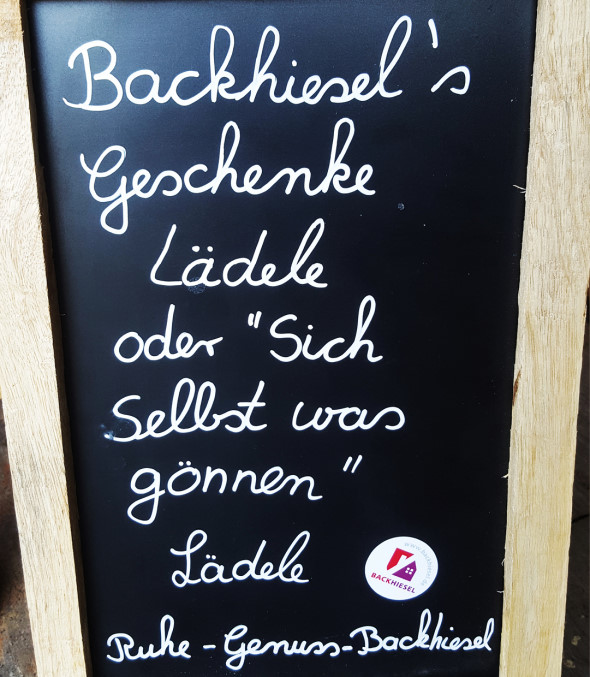 Backhiesel's
Geschenke
Lädele
oder "Sich
Selbst was
gönnen"
Lädele
BACKHIESEL
Ruhe - Genuss - Backhiesel